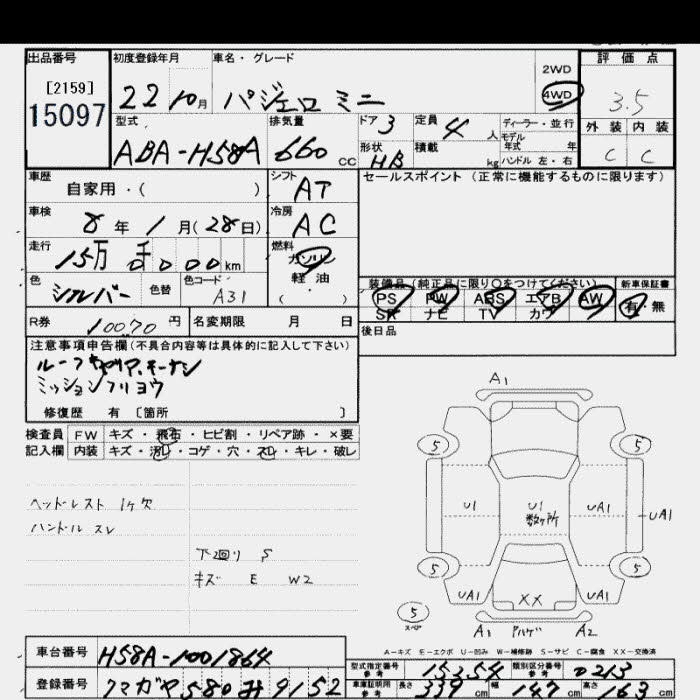 出品番号 初度登録年月 車名・グレード 評価点
[2159]
15097
22 10月 パジェロ ミニ
2WD
4WD
3.5
型式 排気量 ドア 定員 ディーラー・並行
ABA-H58A 660 cc 3 4 人 モデル年式 年
形状 積載 kg ハンドル 左・右
HB
外装 内装
C C
車歴 シフト セールスポイント(正常に機能するものに限ります)
自家用・( ) AT
車検 冷房
8年 1月(28日) AC
走行 燃料
15万 km ガソリン
軽油
( )
色 色替 色コード
シルバー A31
装備品(純正品に限り○をつけてください) 新車保証書
PS PW ABS エアB AW 有・無
SR ナビ TV カワ
R券 10070円 名変期限 月 日
後日品
注意事項申告欄(不具合内容等は具体的に記入して下さい)
ミッションフリョウ
修復歴 有 〔箇所 〕
検査員 FW キズ・飛石・ヒビ割・リペア跡・×要
記入欄 内装 キズ・汚レ・コゲ・穴・スレ・キレ・破レ
ヘッドレスト 1ケ欠
ハンドル スレ
下廻り S
キズ E W2
A1
5 5
U1 U1 UA1 UA1
数ヶ所
5 5
UA1 XX UA1
5
スペア
A1 アルゲ A2
A-キズ E-エクボ U-凹み W-補修跡 S-サビ C-腐食 XX-交換済
車台番号 H58A-1001864
型式指定番号 15354 類別区分番号 0213
登録番号 クマガヤ 580 み 9152
車庫証明用参考 長さ 339 cm 幅 147 cm 高さ 163 cm